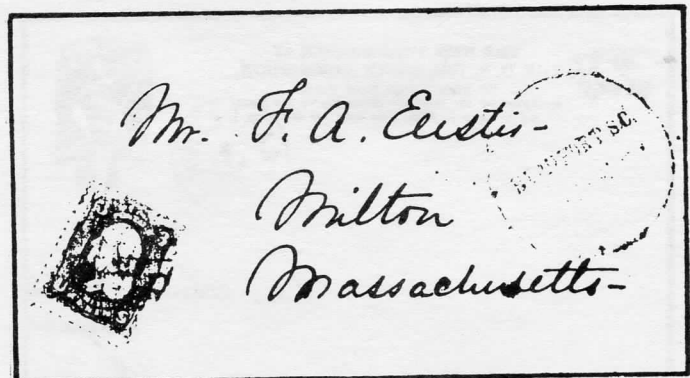 Mr. F. A. Eustis-
Milton
Massachusetts-
BEAUFORT S.C.